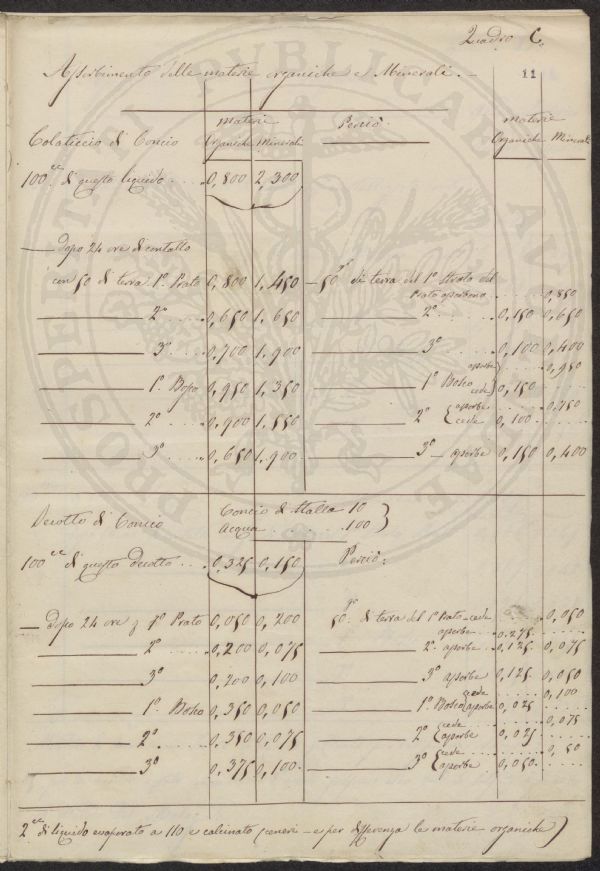 Quadro C.
11
Assorbimento delle materie organiche e Minerali. —
Materie Perciò. materie
Colaticcio di Concio Organiche Minerali Organiche Minerali
100cc di questo liquido . . . . 0,800 2,300
— Dopo 24 ore di contatto
con 50 di terra 1º Prato 0,800 1.450 — 50gr di terra del 1º Strato del
Prato assorbono . . . . . 0,850
2º . . . . 0,650 1.650 2º . . . . . 0,150 0,650
3º . . . . 0,700 1.900 3º . . . . . 0,100 0,400
1º Bosco 0,950 1,350 1º Bosco assorbe . . . . . 0,950
cede 0,150 . . . .
2º . . . . 0,900 1.550 2º assorbe . . . . . 0,750
cede 0,100 . . . .
3º . . . . 0,650 1.900 3º — assorbe 0,150 0,400
Decotto di Concio Concio di Stalla 10
Acqua . . . . . . . . 100
100cc di questo decotto . . . 0,325 0,150 Perciò:
— Dopo 24 ore 1º Prato 0,050 0,200 50gr di terra del 1º Prato cede . . . . 0,050
assorbe 0.275 . . . .
2º . . . . 0,200 0,075 2º assorbe 0,125 0,075
3º 0,200 0,100 3º assorbe 0,125 0,050
1º Bosco 0,350 0,050 1º Bosco cede . . . . . 0,100
assorbe 0,025 . . . .
2º . . . . 0,350 0,075 2º cede . . . . . 0,075
assorbe 0,025 . . . .
3º 0,375 0,100 3º cede . . . . . 0,50
assorbe 0,050 . . . .
2cc di liquido evaporato a 110 e calcinato (ceneri — e per differenza le materie organiche)
PROSPERITATI PUBLICAE AUGENDAE